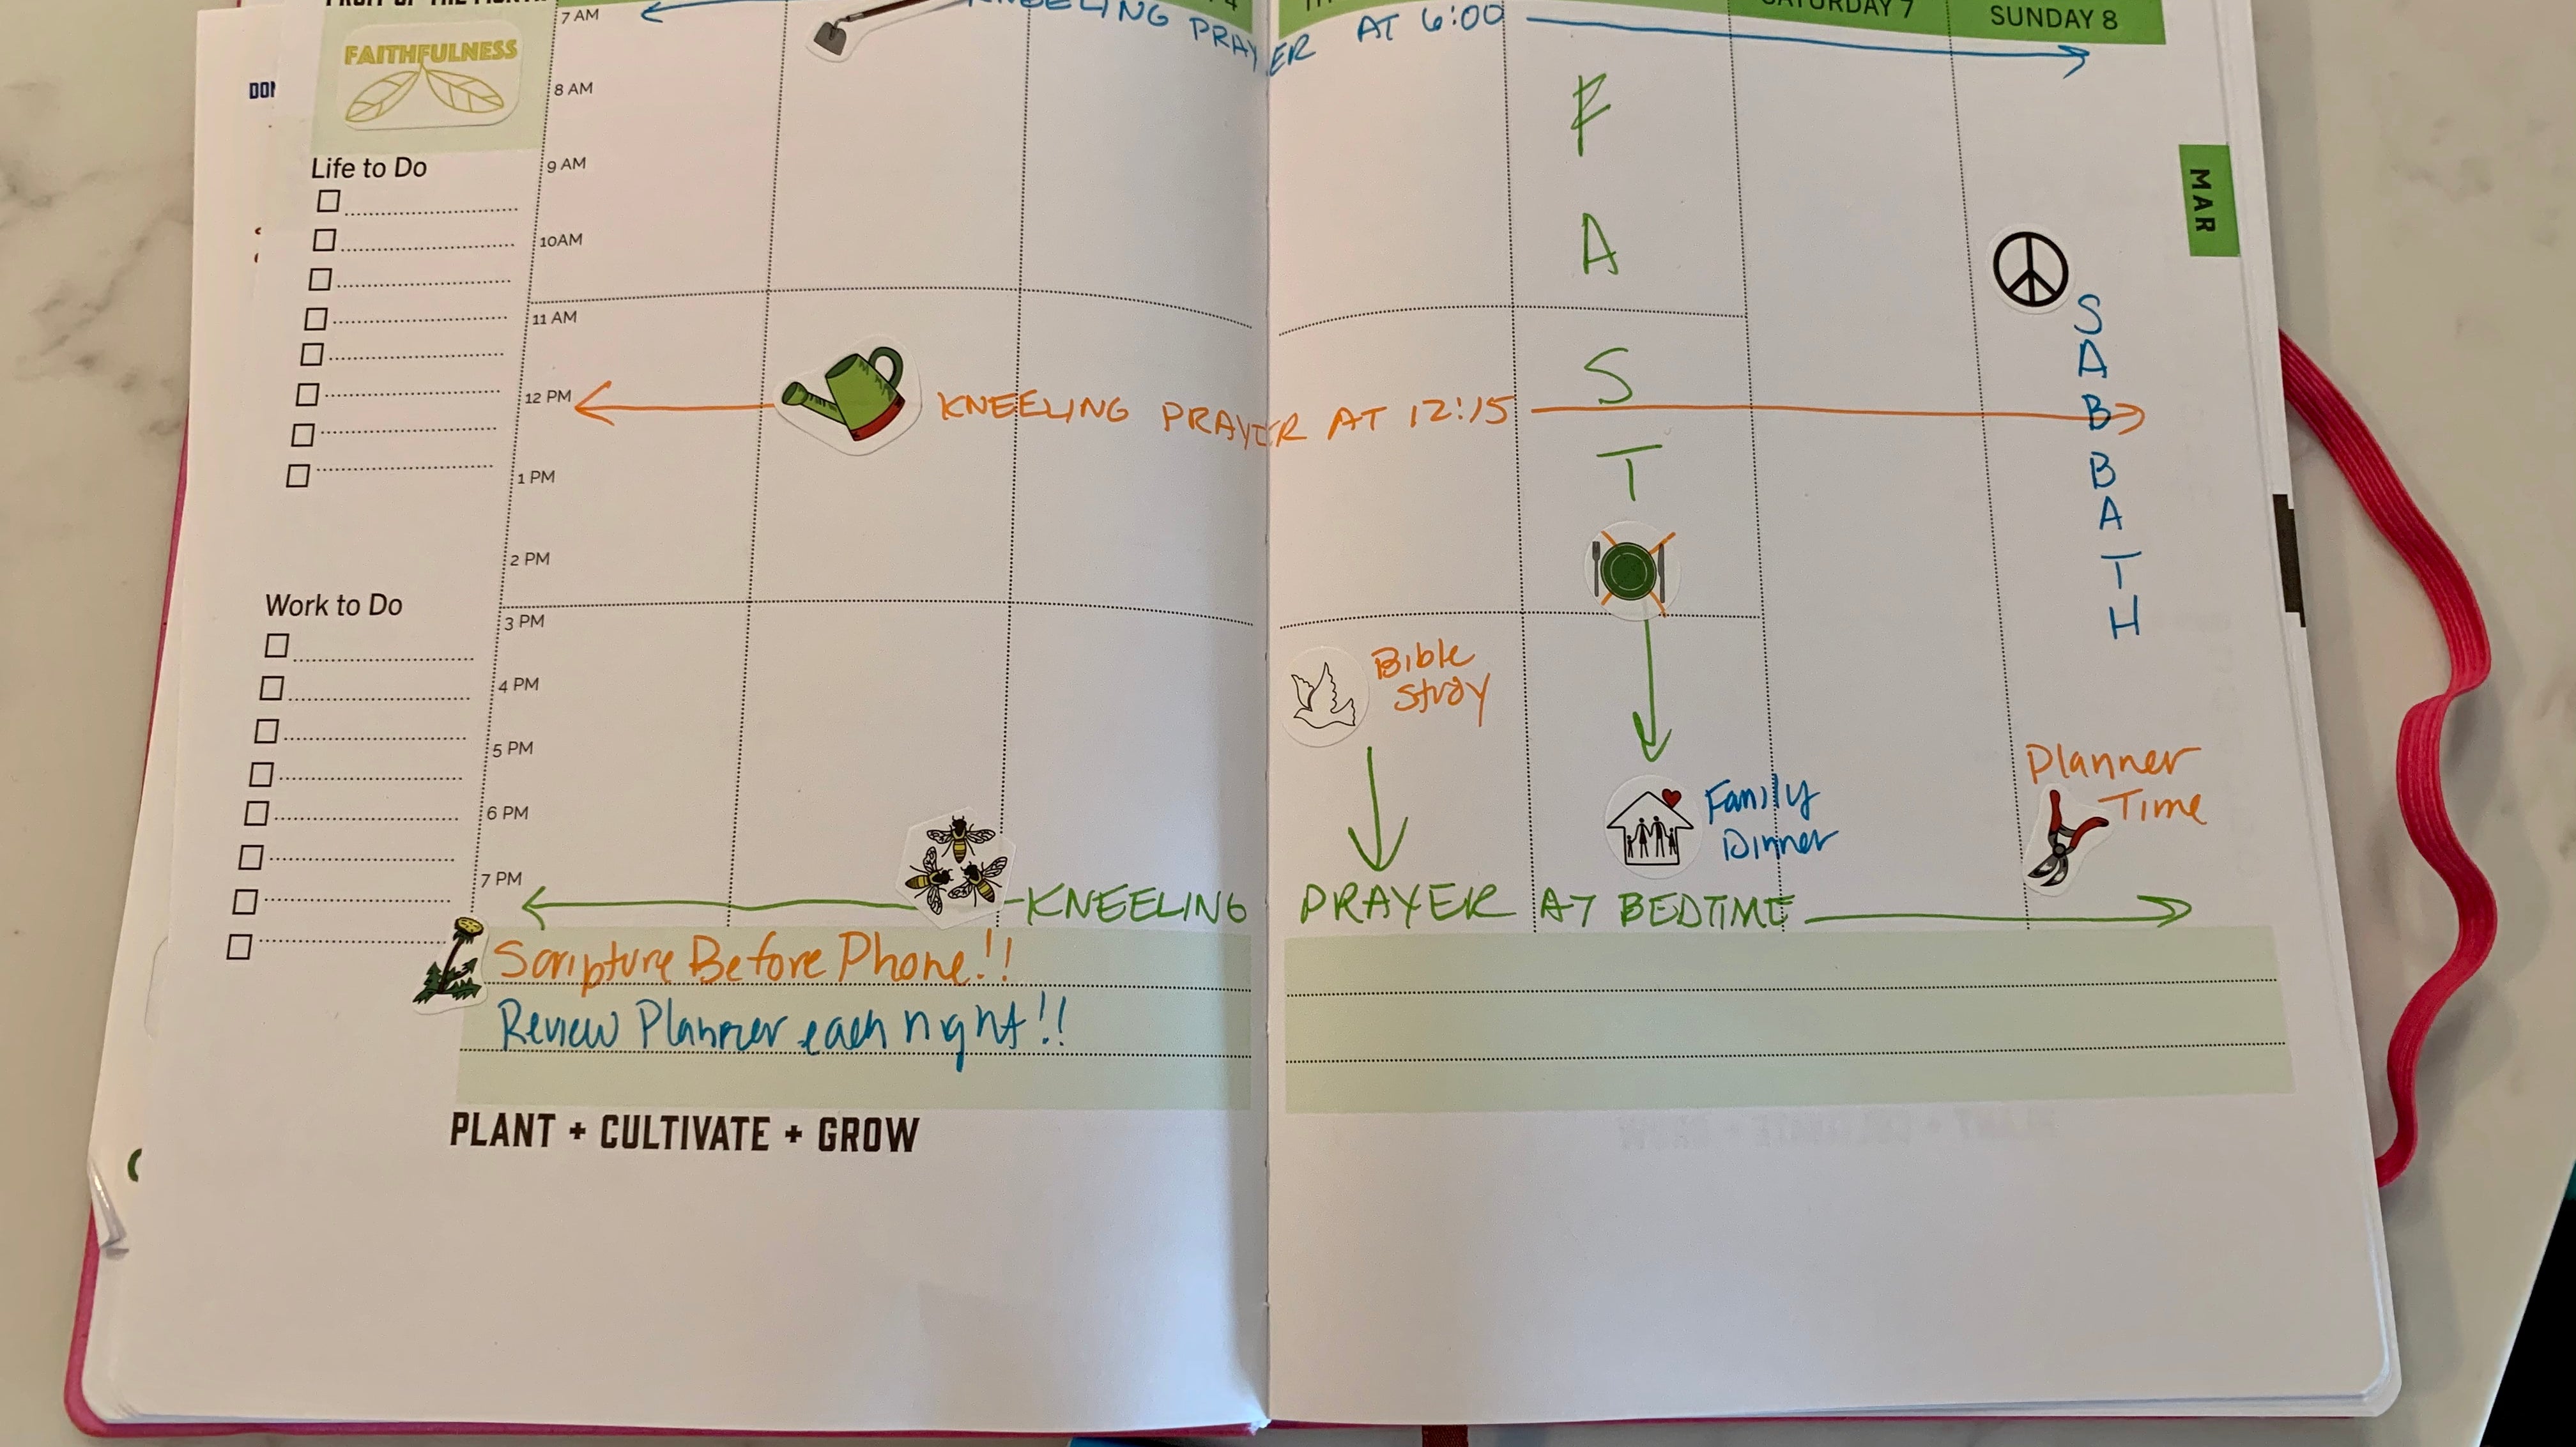 7 AM
KNEELING PRAYER AT 6:00
SATURDAY 7
SUNDAY 8
FAITHFULNESS
8 AM
MAR
Life to Do
9 AM
10AM
11 AM
12 PM
KNEELING PRAYER AT 12:15
1 PM
2 PM
FAST
SABBATH
Work to Do
3 PM
4 PM
5 PM
6 PM
7 PM
Bible
Study
Family
Dinner
Planner
Time
KNEELING PRAYER AT BEDTIME
Scripture Before Phone!!
Review Planner each night!!
PLANT + CULTIVATE + GROW